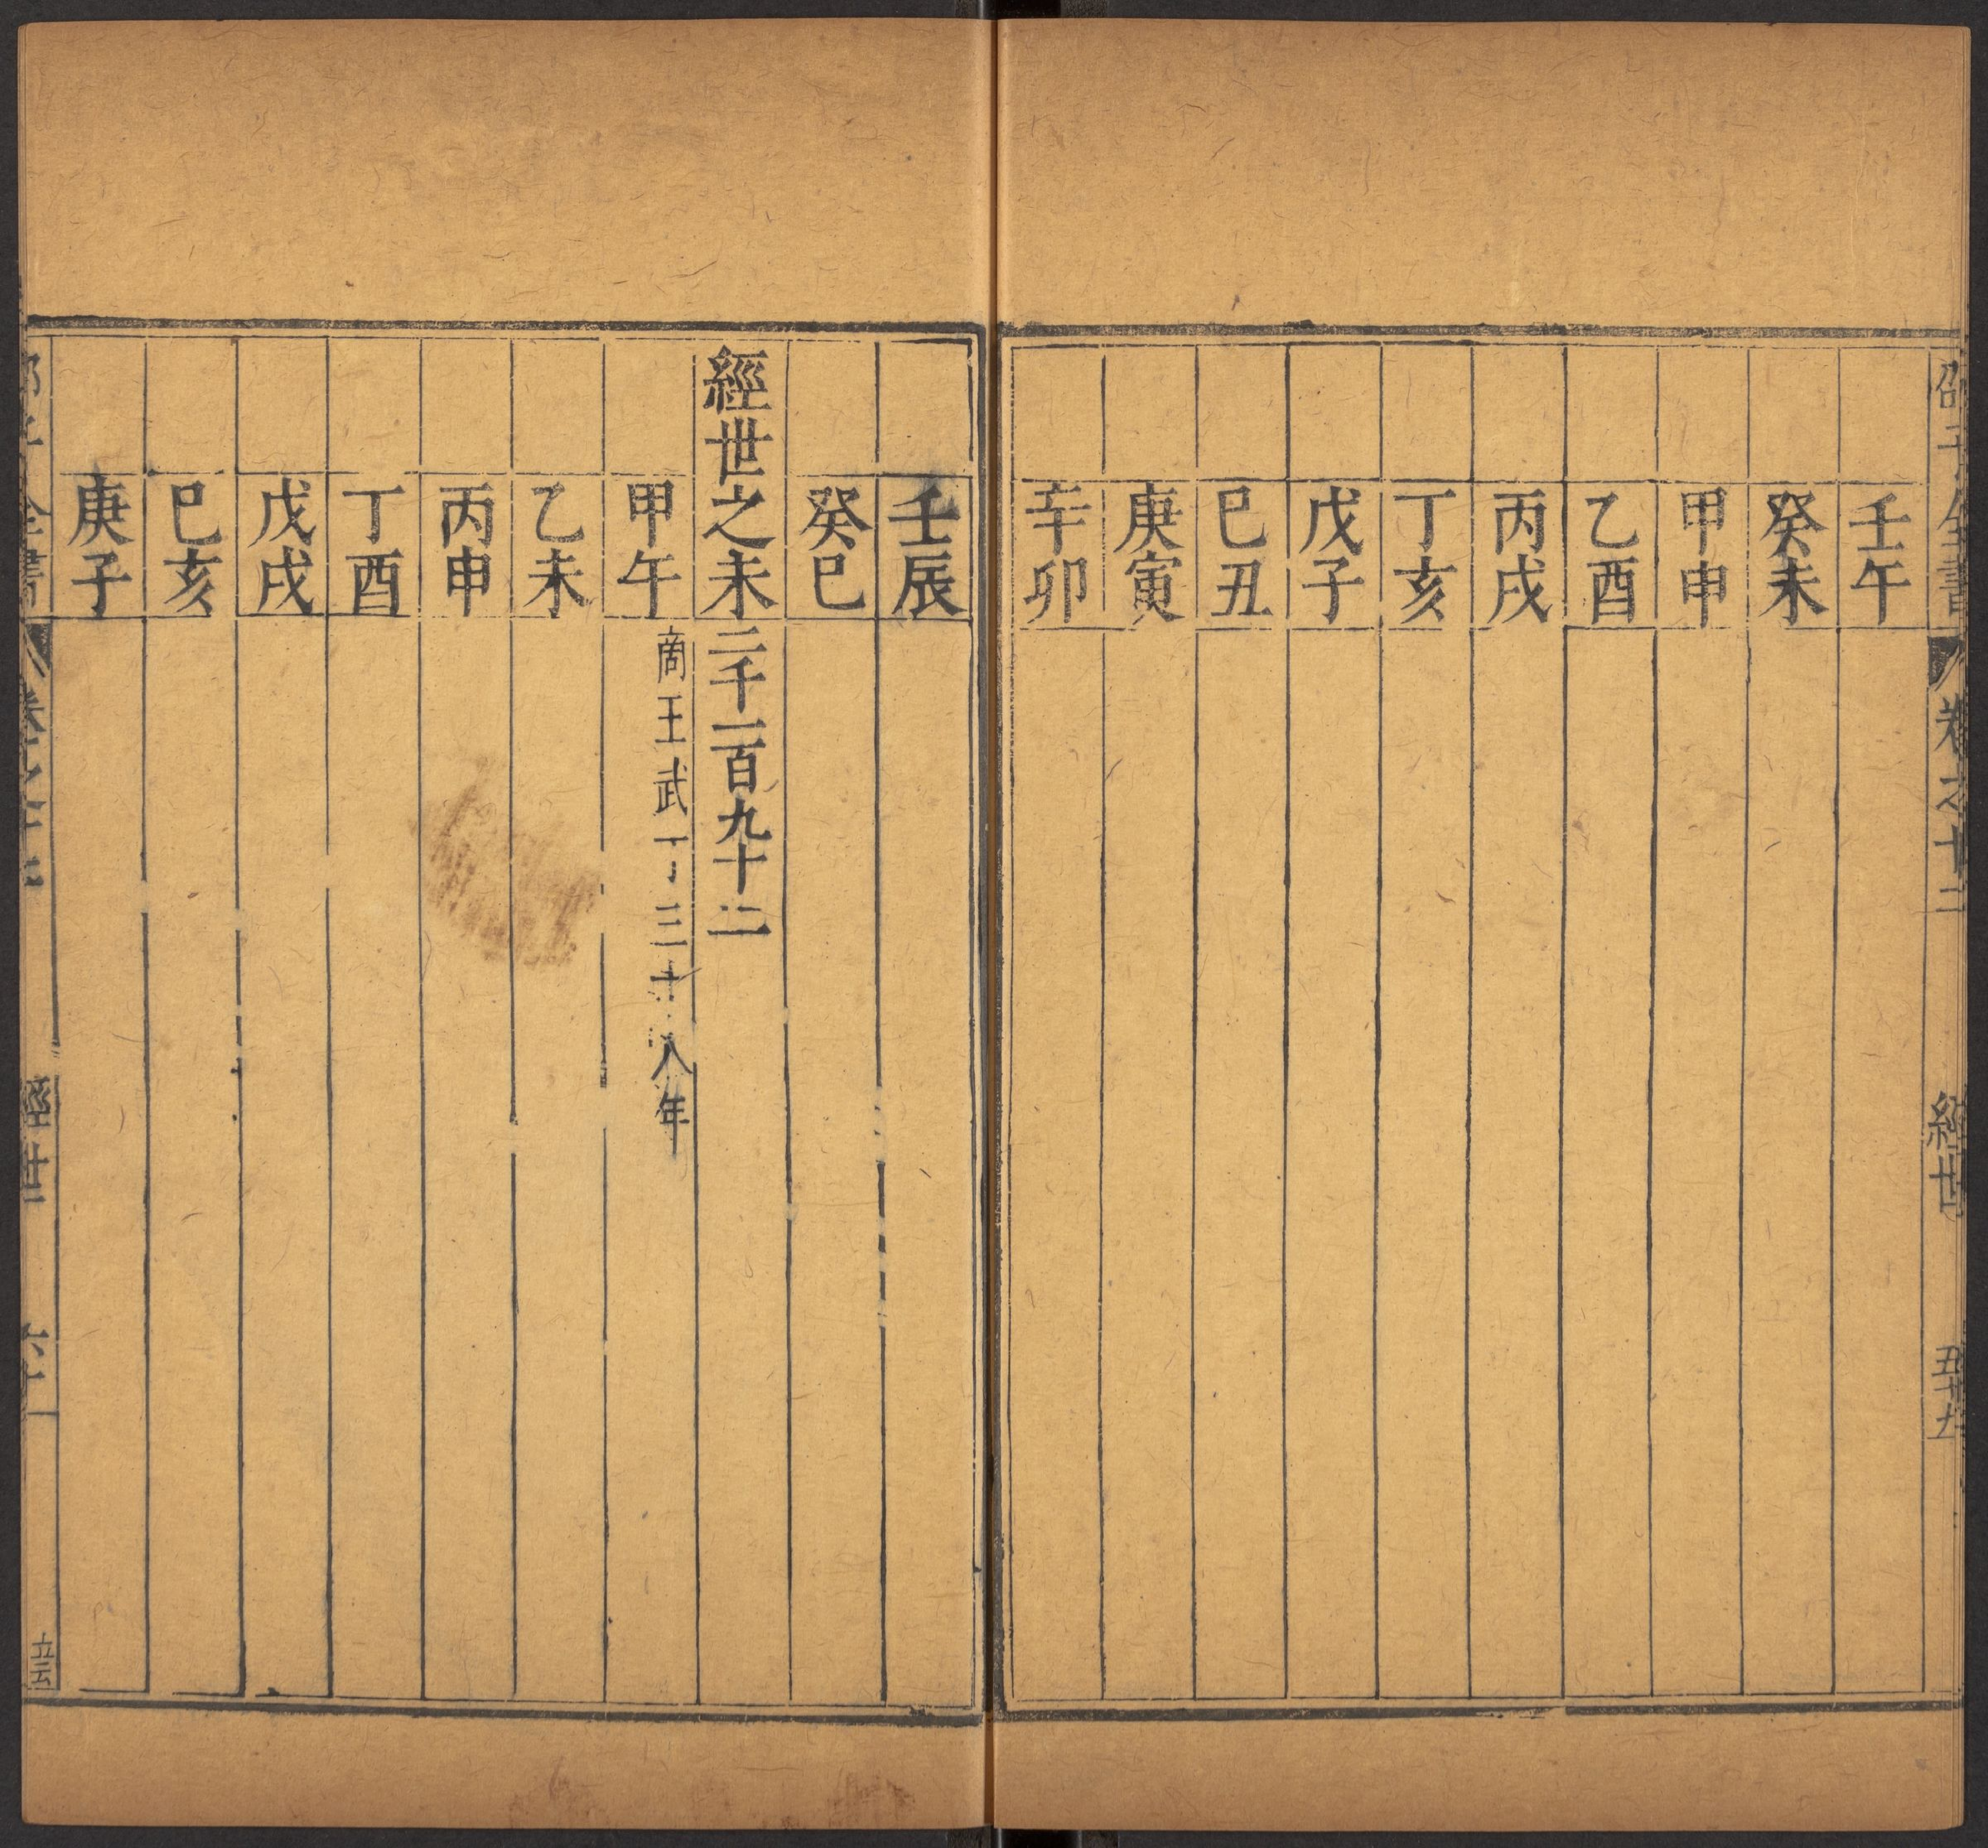 邵子全書 卷之十二 經世 五十九
壬午
癸未
甲申
乙酉
丙戌
丁亥
戊子
巳丑
庚寅
辛卯
壬辰
癸巳
經世之未二千一百九十二
甲午 商王武丁三十八年
乙未
丙申
丁酉
戊戌
巳亥
庚子
子全書 卷之十二 經世 六十